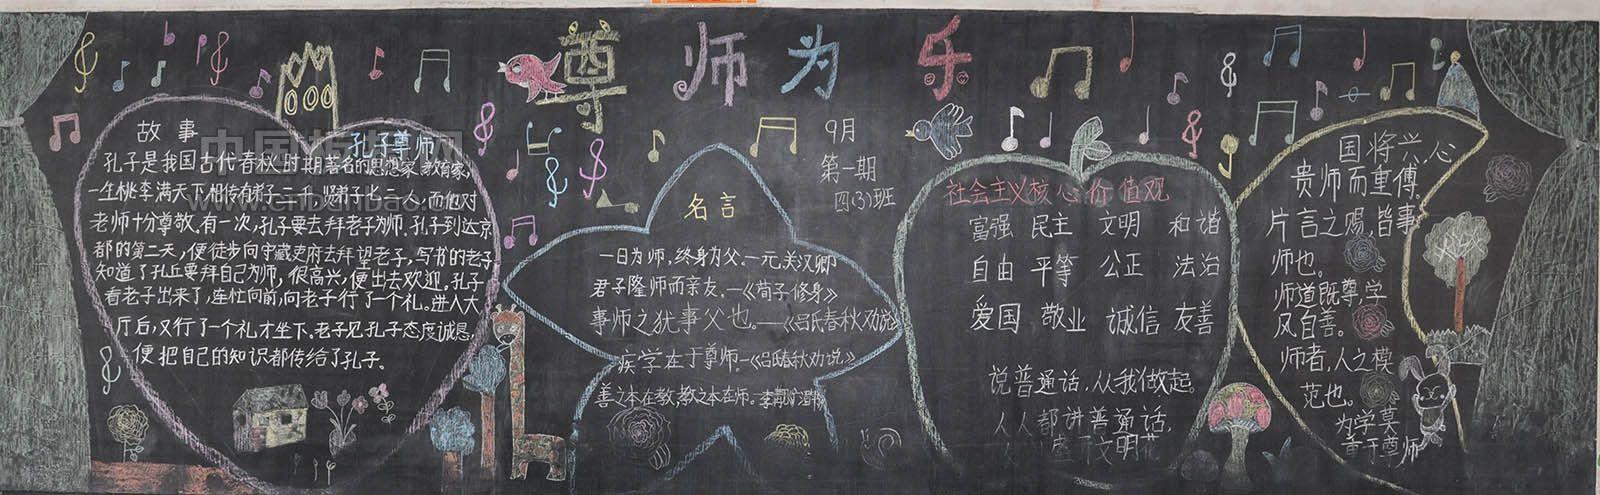 尊师为乐
9月
第一期
四(3)班
故事
孔子尊师
孔子是我国古代春秋时期著名的思想家、教育家,
一生桃李满天下,相传有弟子三千,贤弟子七十二人,而他对
老师十分尊敬。有一次,孔子要去拜老子为师。孔子到达京
都的第二天,便徒步向守藏史府去拜望老子,写书的老子
知道了孔丘要拜自己为师,很高兴,便出去欢迎。孔子
看老子出来了,连忙向前,向老子行了一个礼。进入大
厅后,又行了一个礼才坐下。老子见孔子态度诚恳,
便把自己的知识都传给了孔子。
名言
一日为师,终身为父。一元·关汉卿
君子隆师而亲友。—《荀子·修身》
事师之犹事父也。——《吕氏春秋·劝说
疾学在于尊师。—《吕氏春秋·劝说》
善之本在教,教之本在师。
社会主义核心价值观
富强 民主 文明 和谐
自由 平等 公正 法治
爱国 敬业 诚信 友善
说普通话,从我做起。
人人都讲普通话,
文明花
国将兴,心
贵师而重傅。
片言之赐,皆事
师也。
师道既尊,学
风自善。
师者,人之模
范也。
为学莫
重于尊师